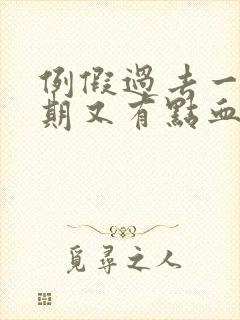 例假過去一
期又有點血
覓尋之人